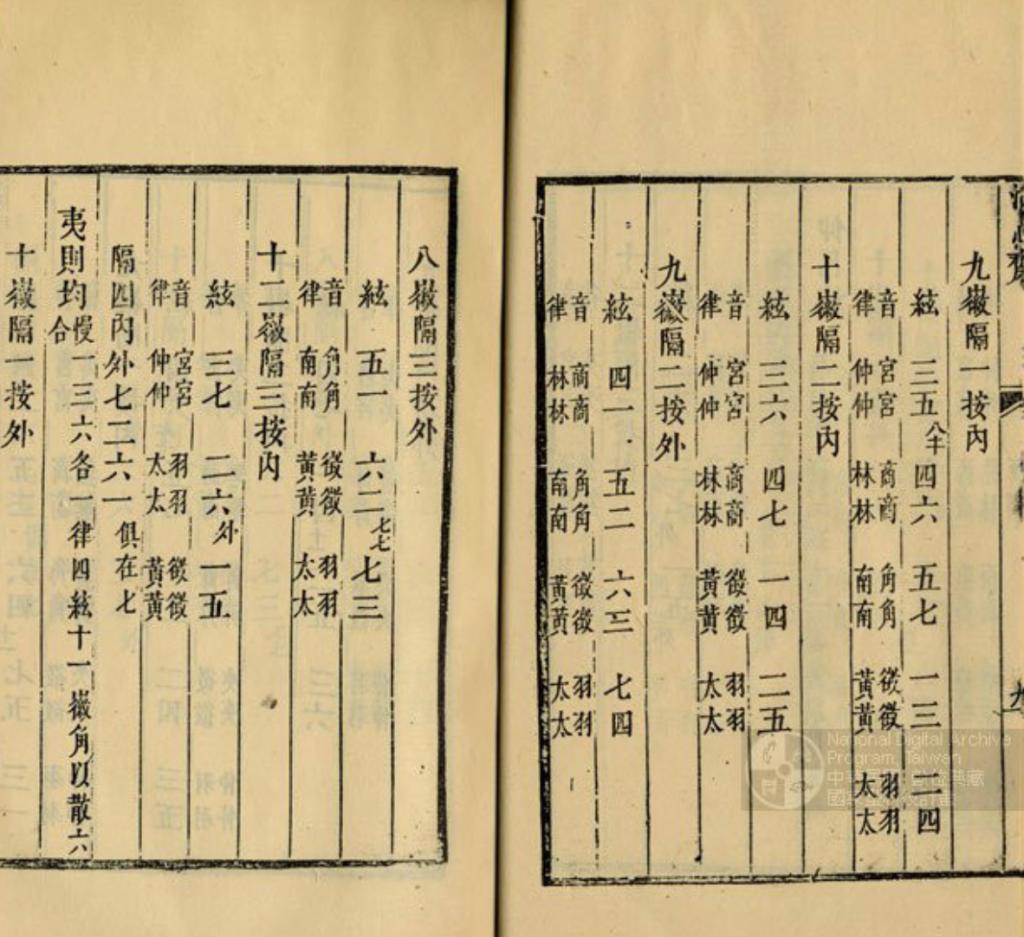 九徽隔一按內
絃 三五八半 四六 五七 一三 二四
音 宮宮 商商 角角 徵徵 羽羽
律 仲仲 林林 南南 黃黃 太太
十徽隔二按內
絃 三六 四七 一四 二五
音 宮宮 商商 徵徵 羽羽
律 仲仲 林林 黃黃 太太
九徽隔二按外
絃 四一 五二 六三 七四
音 商商 角角 徵徵 羽羽
律 林林 南南 黃黃 太太
八徽隔三按外
絃 五一 六二七七 七三
音 角角 徵徵 羽羽
律 南南 黃黃 太太
十二徽隔三按內
絃 三七 二六外 一五
音 宮宮 羽羽 徵徵
律 仲仲 太太 黃黃
隔四內外七二六一 俱在七
夷則均慢一三六各一律四絃十一徽角以散六
合
十徽隔一按外
National Digital Archive
Program, Taiwan